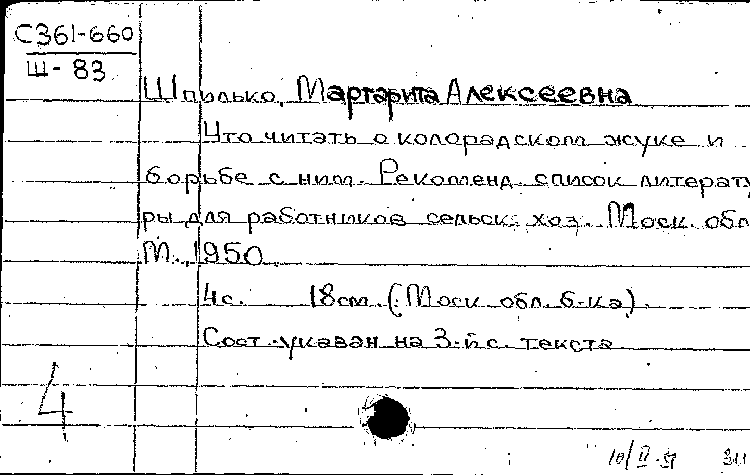 С361-660
Ш-83
Шпилько, Маргарита Алексеевна
Что читать о колорадском жуке и
борьбе с ним. Рекоменд. список литерату
ры для работников сельск. хоз. Моск. обл.
М., 1950.
4с. 18см. (Моск. обл. б-ка).
Сост. указан на 3-й с. текста
4